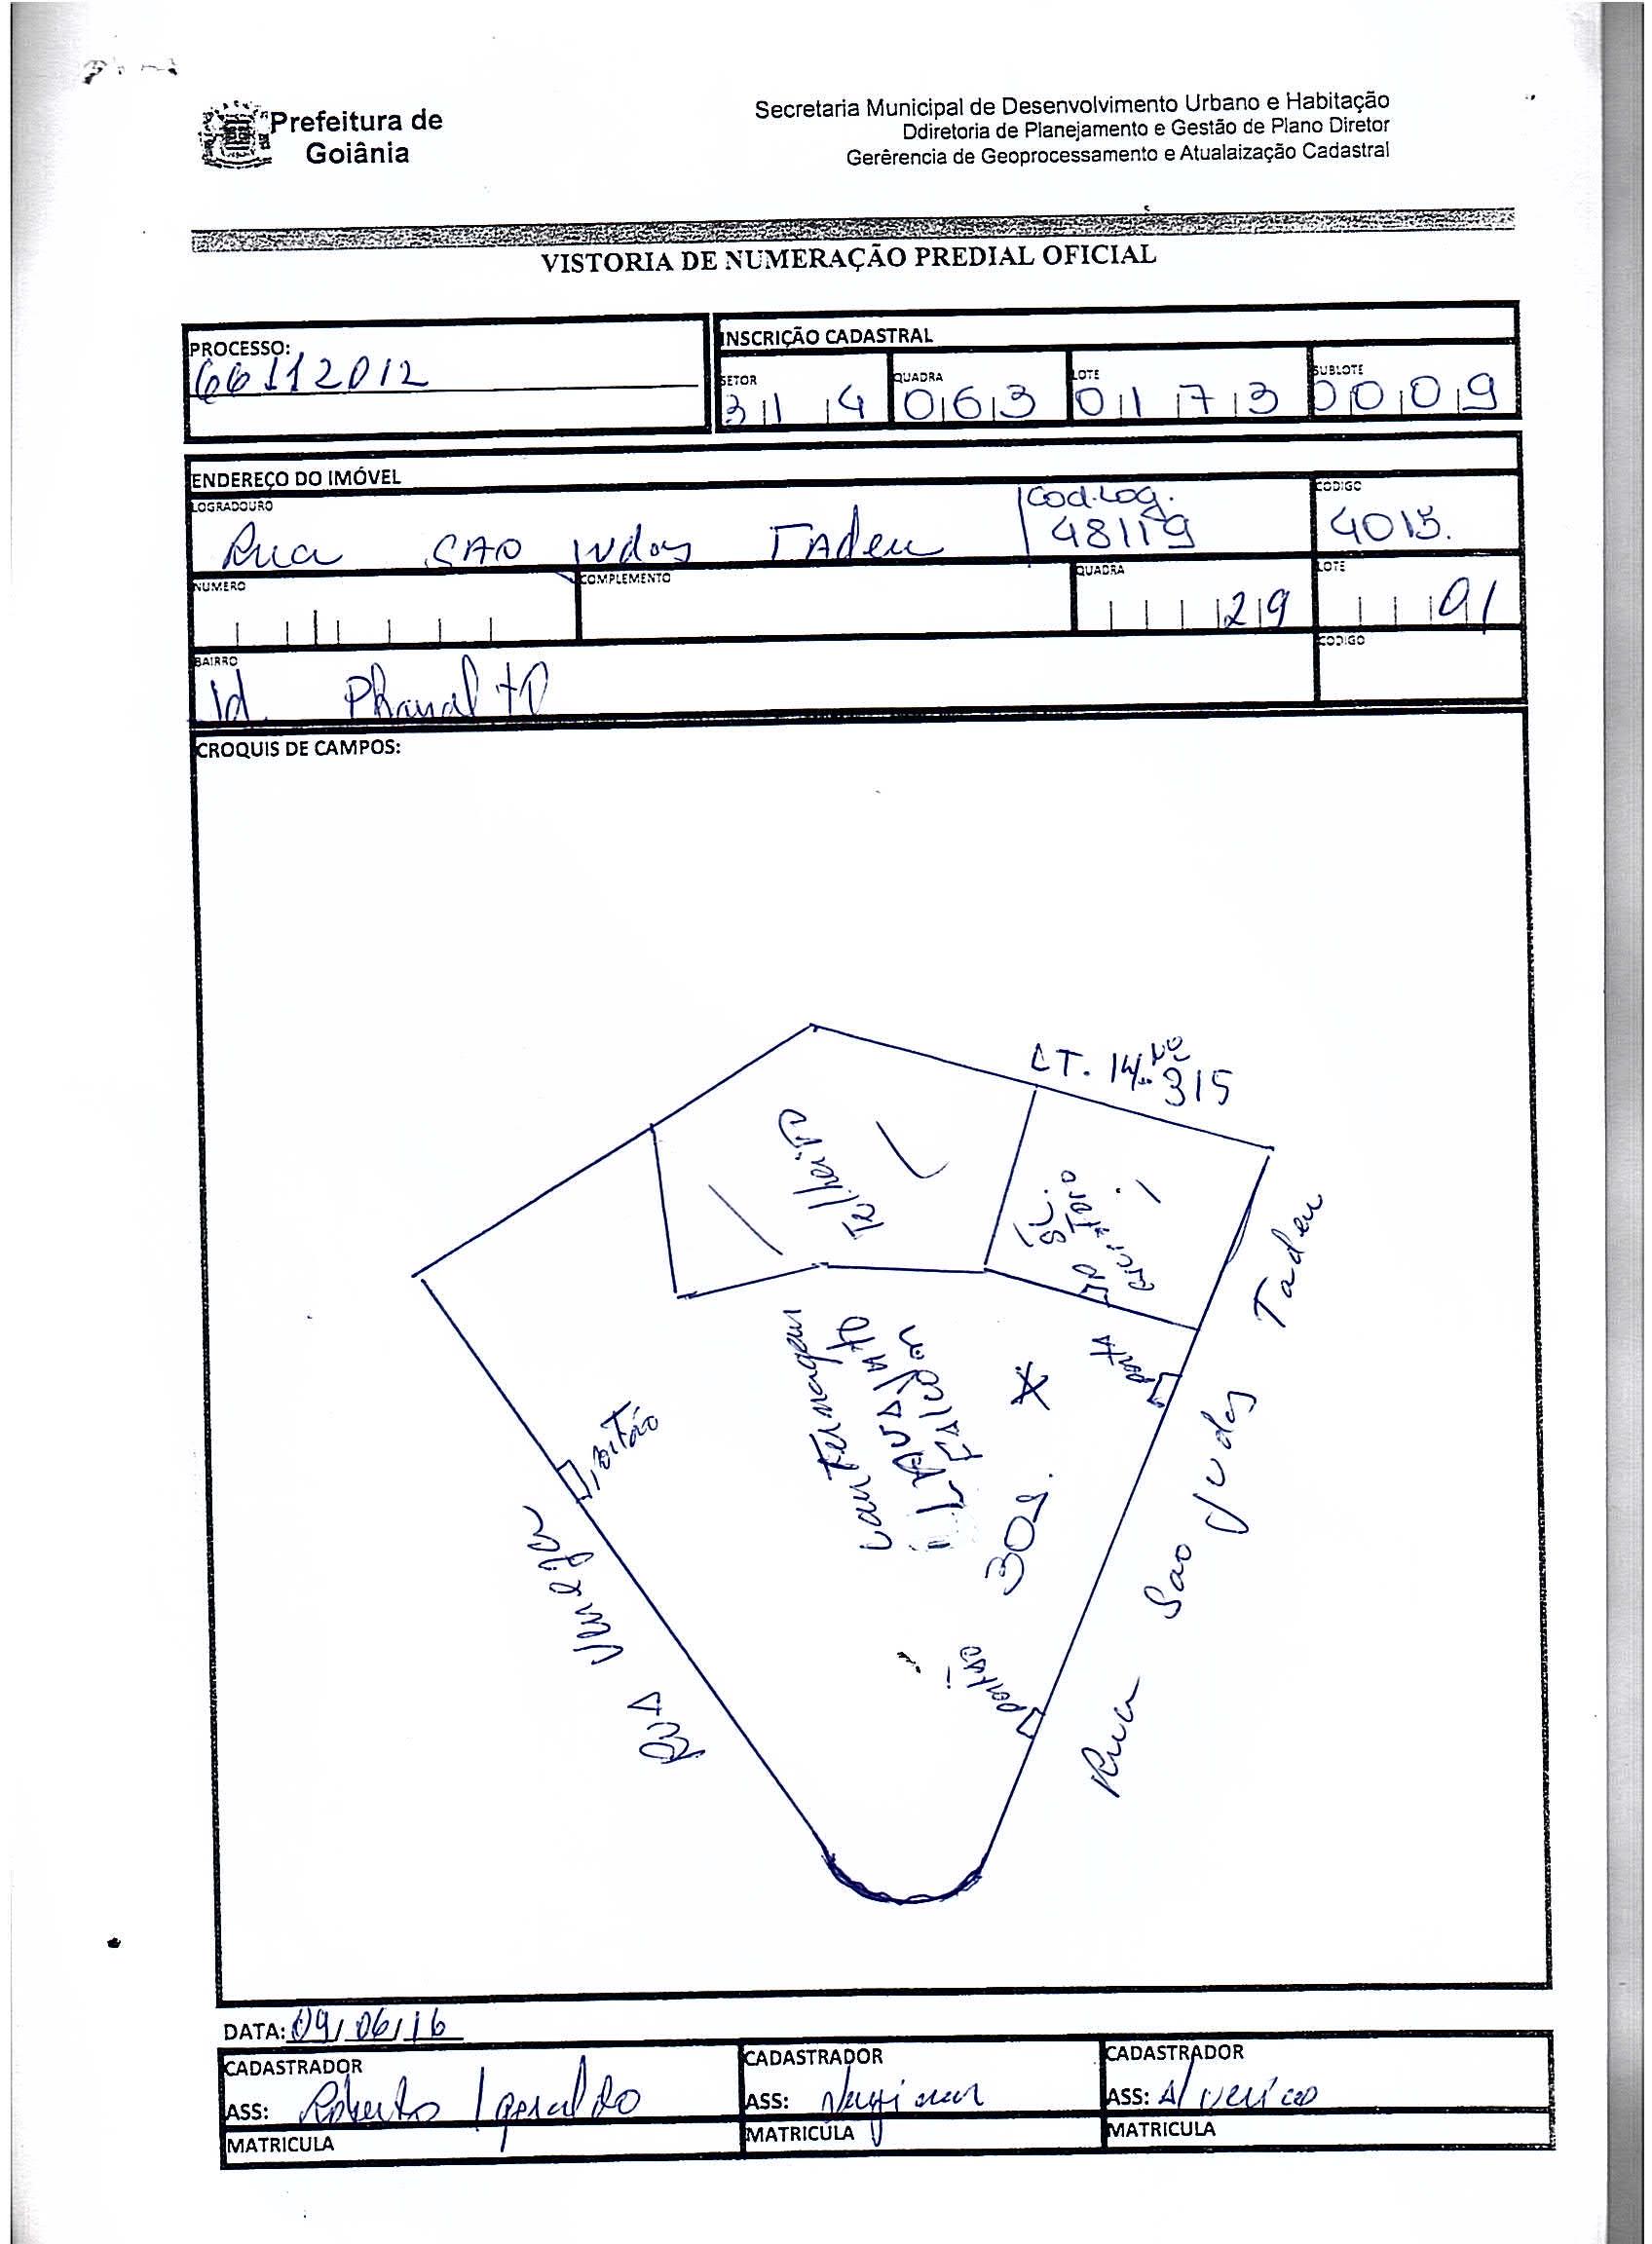 Prefeitura de
Goiânia
Secretaria Municipal de Desenvolvimento Urbano e Habitação
Ddiretoria de Planejamento e Gestão de Plano Diretor
Gerêrencia de Geoprocessamento e Atualaização Cadastral
VISTORIA DE NUMERAÇÃO PREDIAL OFICIAL
PROCESSO:
66112012
INSCRIÇÃO CADASTRAL
SETOR QUADRA LOTE SUBLOTE
31 4 063 0173 0009
ENDEREÇO DO IMÓVEL
LOGRADOURO Cod.Log. CODIGO
Rua SAO Judas TAdeu 48119 4015.
NUMERO COMPLEMENTO QUADRA LOTE
29 01
BAIRRO CODIGO
Jd
CROQUIS DE CAMPOS:
LT. 14 Nº
315
SL.
porta
309.
portão
RUA
Rua Sao Judas Tadeu
DATA: 09/06/16
CADASTRADOR CADASTRADOR CADASTRADOR
ASS: Roberto / geraldo ASS: ASS:
MATRICULA MATRICULA MATRICULA